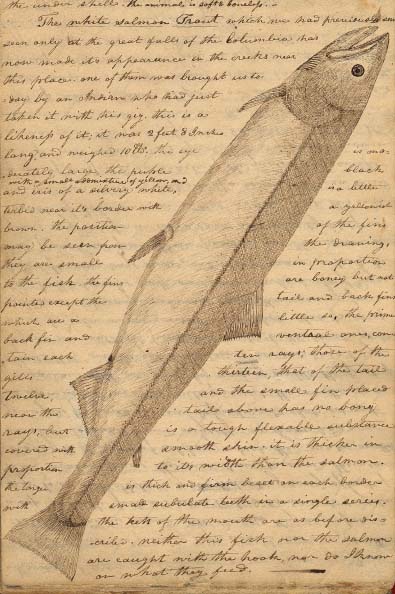 the under shells. the animal is soft & boneless.
The white salmon Trout which we had previously seen
seen only at the great falls of the Columbia has
now made it's appearance in the creeks near
this place. one of them was brought us to-
day by an Indian who had just
taken it with his gig. this is a
likeness of it; it was 2 feet 8 Inches
long, and weighed 10 lbs. the eye is mo-
derately large, the puple black
with a small admixture of yellow and is a little
and iris of a silvery white, a yellowish
terbid near it's border with of the fins
brown. the position the drawing,
may be seen from in proportion
they are small are boney but not
to the fish. the fins tail and back fins
pointed except the little so, the prime
which are a ventral ones, con-
back fin and ten rays; those of the
tain each thirteen, that of the tail
gills and the small fin placed
twelve, tail above has no bony
near the is a tough flexable substance
rays, but smooth skin. it is thicker in
covered with to it's width than the salmon.
proportion is thick and firm beset on each border
the tongue small subulate teeth in a single series.
with the teeth of the mouth are as before dis-
cribed. neither this fish nor the salmon
are caught with the hook, nor do I know
on what they feed.